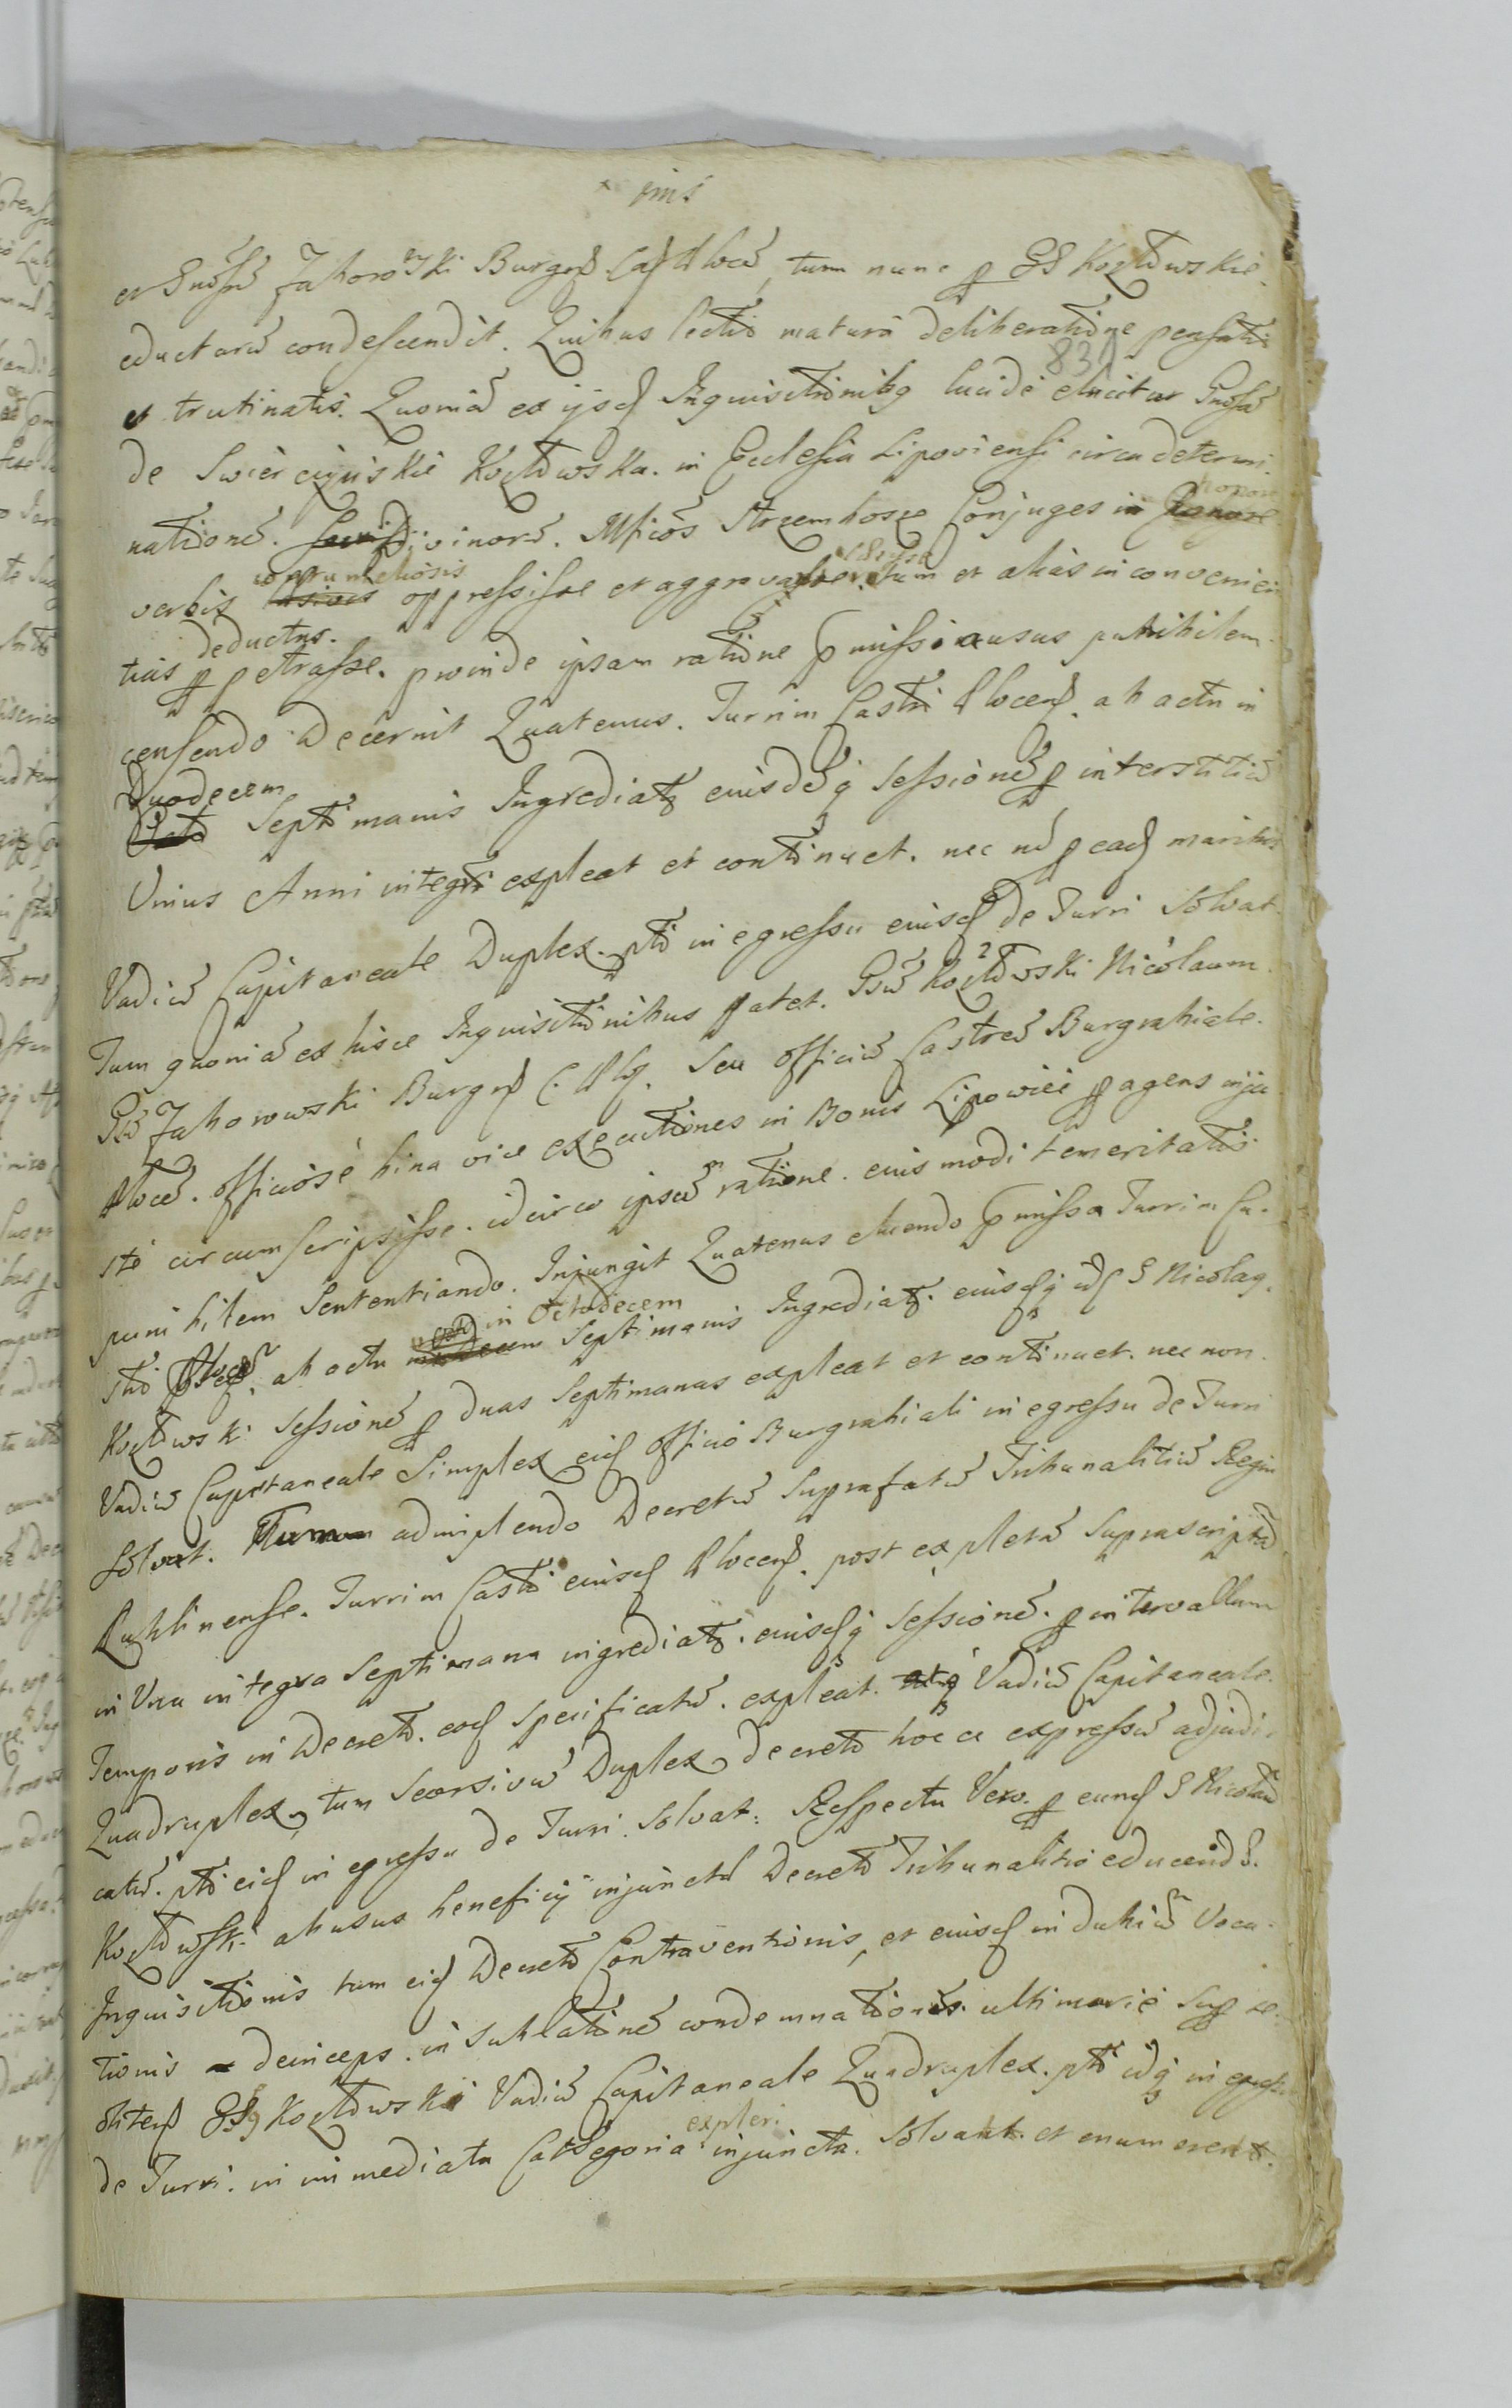 et Gnosū JahorowSki Burgrf Cas Ploceñ, tum nunc p GG Kozłowskie
eductarū condescendit. Quibus lectis matura deliberatione pensatis
831
et trutinatis. Quoniā ex ijsd Inquisitionibq lucidè elucitur Gnosā
de Swierczyńskie Kozłowska. in Ecclesia Lipoviensi circa determi.
nationē. Divinorū. Mficos Strzembosze Conjuges in honore
verbis contumeliosis oppressisse et aggravasse tum et alias inconvenien
deductas.
tias p petrasse. proinde ipsam ratione pmissi ausus punibilem
censendo Decernit Quatenus. Turrim Castri Ploceñ. ab actu in
Duodecem
Octo Septimanis Ingrediatq eiusdēq sessionē p interstitiū
Unius Anni integri expleat et continuet. nec nō p ead maritus
Vadiū Capitaneale Duplex. pti in egressu eiusd de Turri Solvat.
Tum quoniā ex hisce Inquisitionibus patet. Gsū Kozłowski Nicolaum
Gsū Jahorowski Burgrf C. Plq. Seu officiū Castreñ Burgrabiale
Ploceñ. officiosè bina vice executiones in Bonis Lipowiec pagens inju
stè circumscripsisse. idcirco ipsum ratione. eiusmodi temeritatis
punibilem Sententiando. Injungit Quatenus eluendo pmissa Turrim Ca.
stri Ploceñ. ab actu in Octodecem Septimanis Ingrediatq. eiusdq id G Nicolaq
Kozłowski Sessionē p duas Septimanas expleat et continuet. nec non
Vadiū Capitaneale Simplex eid officio Burgrabiali in egressu de Turri
Solvat. Tum adimplendo Decretū Suprafatū Tribunalitiū Regni
Lublinense. Turrim Castri eiusd Ploceñ. post expletā Suprascriptā
in Una integra Septimana ingrediatq. eiusdq Sessionē. p intervallum
Temporis in Decreto. eod Specificatū. expleat. Vadiū Capitaneale
Quadruplex, tum Seorsivū Duplex Decreto hocce expressū adjudi
catū. pti eid in egressu de Turri. Solvat: Respectu Vero. p eund G Nicolaū
Kozłowski abusus beneficij injuncti Decreto Tribunalitio educendæ.
Inquisitionis tum eid Decreto Contraventionis, et eiusd in dubiū Voca
tionis deinceps. in Sublationē condemnationis. ultimariè Sup ie
obtens GG Kozłowski Vadiū Capitaneale Quadruplex. pti idq in egressu
expleri
de Turri. in immediata Cathegoria injuncta. Solvant. et enumerent.